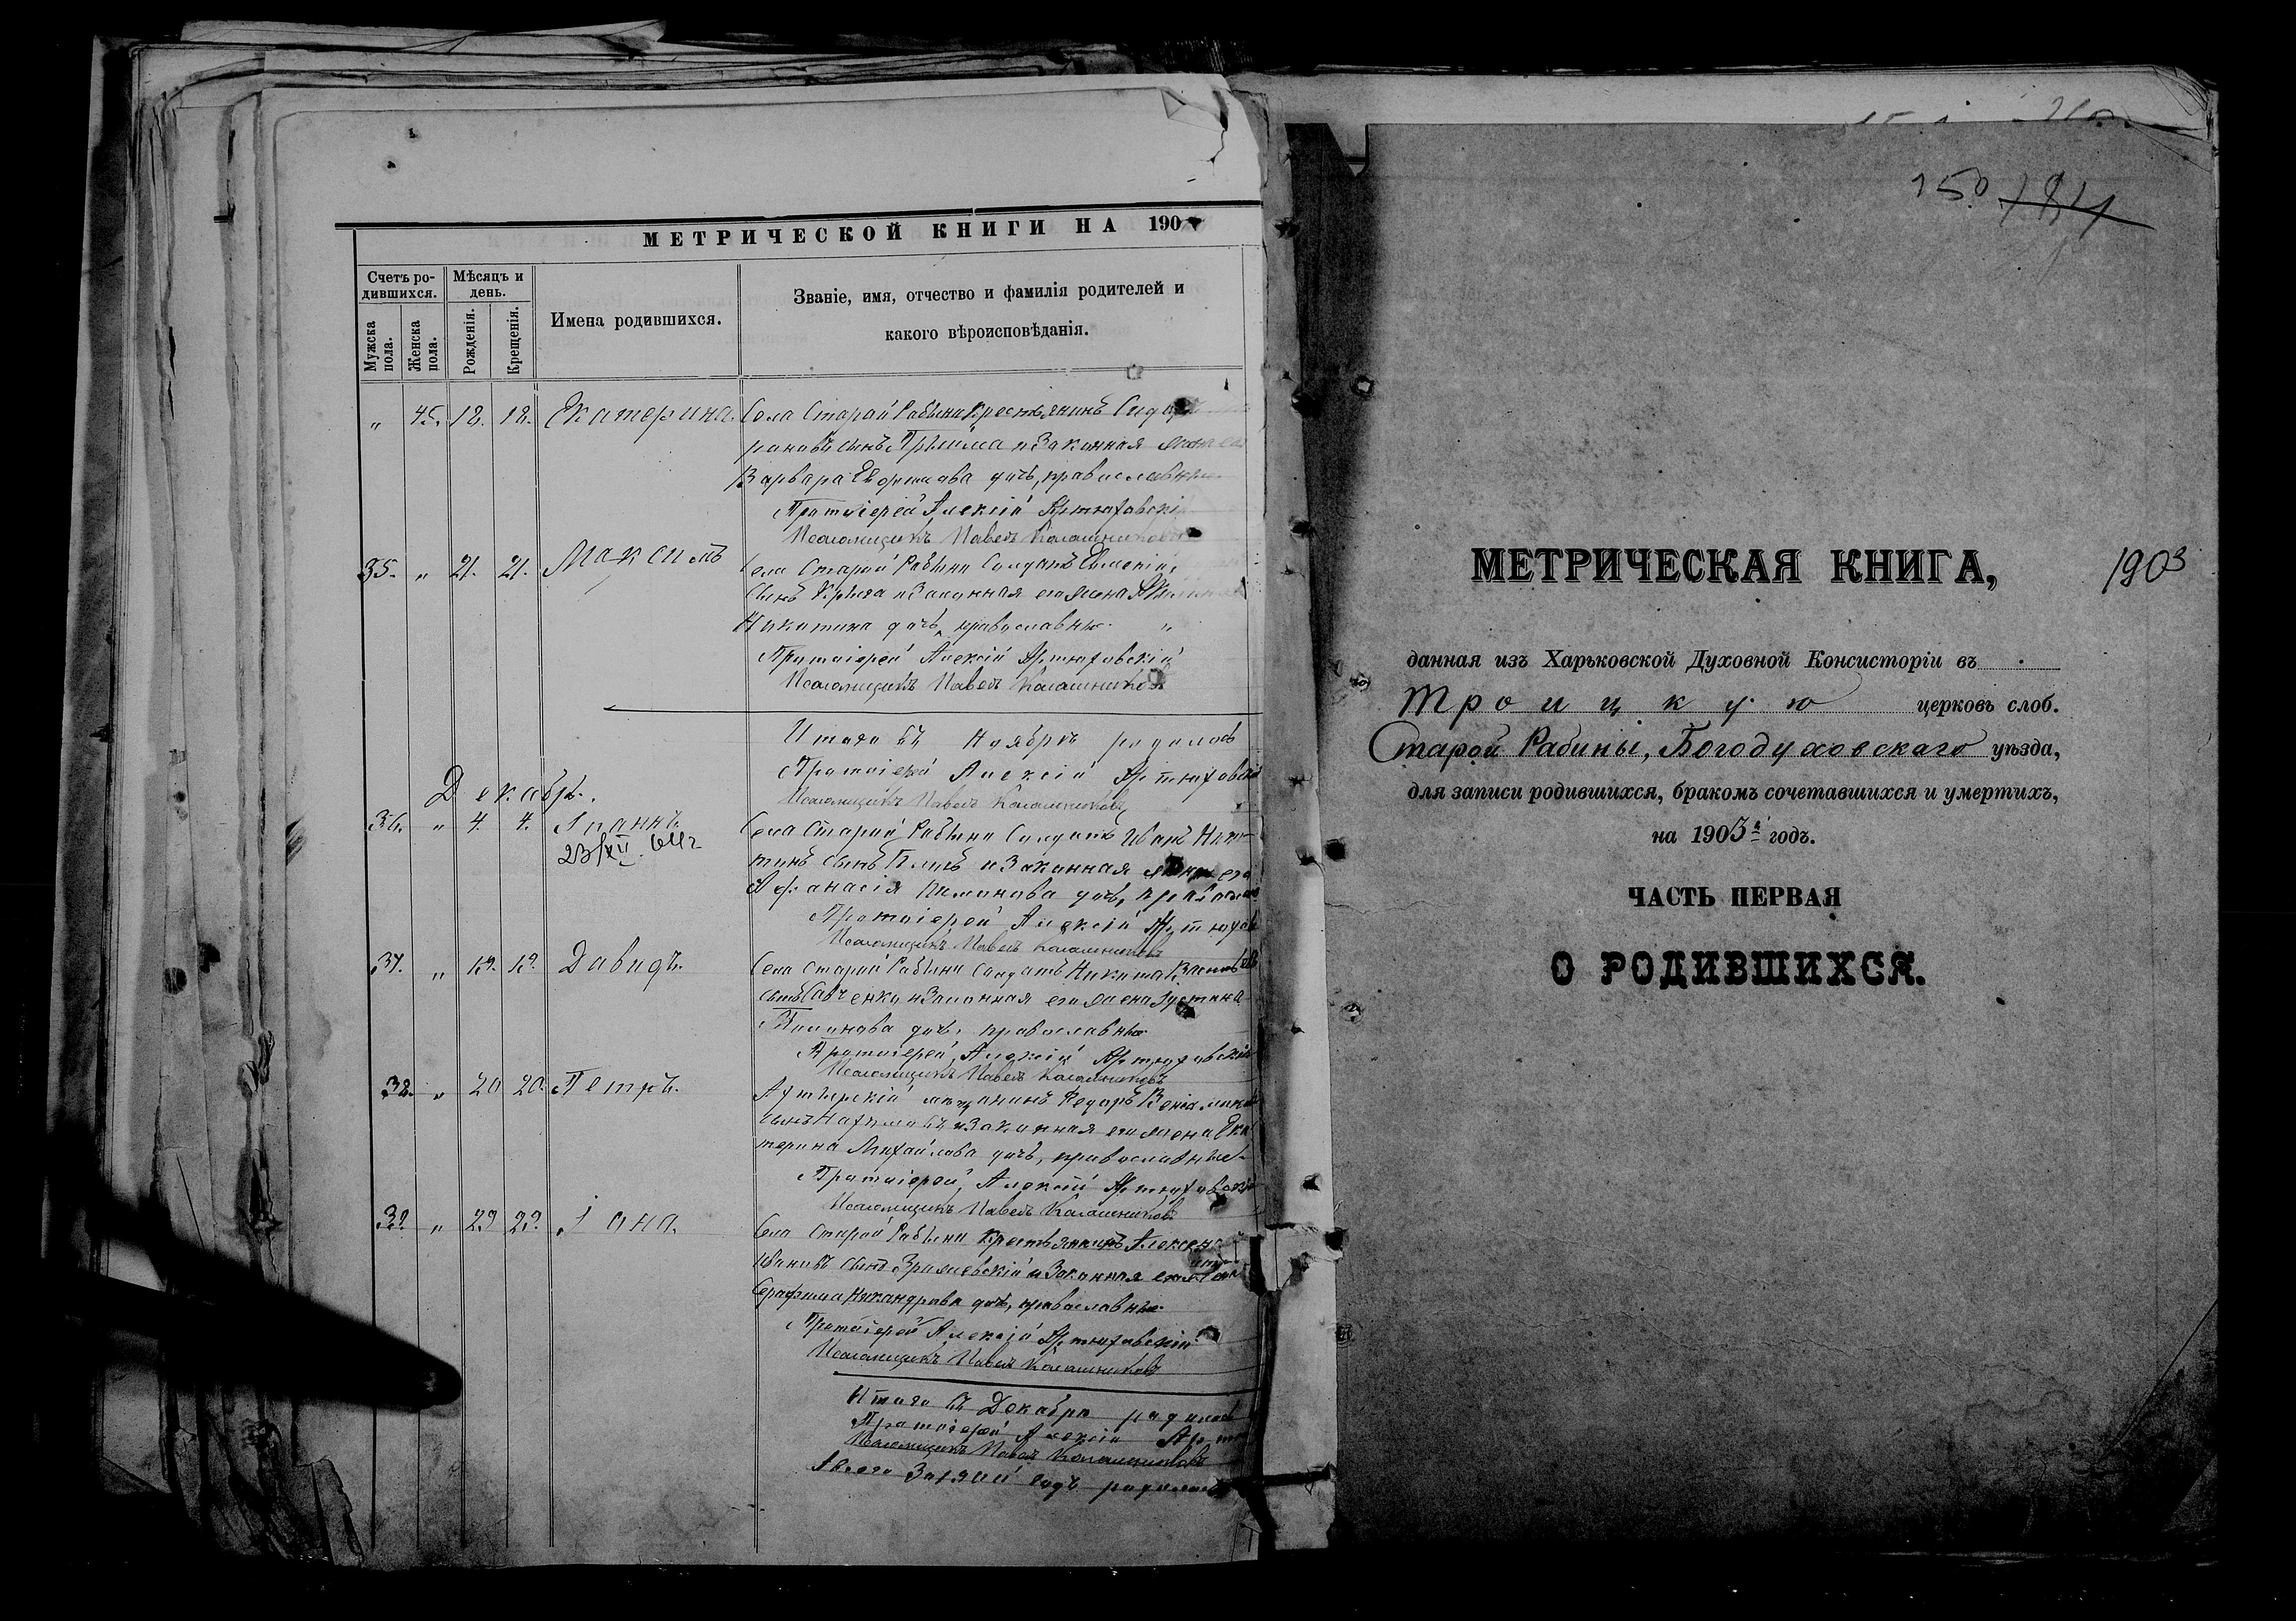 МЕТРИЧЕСКОЙ КНИГИ НА 190
Счетъ ро-
дившихся.
Мѣсяцъ и
день.
Мужска
пола.
Женска
пола.
Рожденія.
Крещенія.
Имена родившихся.
Званіе, имя, отчество и фамилія родителей и
какого вѣроисповѣданія.
„ 45. 12. 12. Екатерина. Села Старой Рабыни Крестьянинъ
сынъ и Законная
Варвара дочь, православные
Протоіерей Алексій Артюховскій
Псаломщикъ Павелъ Калашниковъ
35. „ 21. 21. Максимъ Села Старой Рабыни Солдатъ
сынъ и Законная его жена
Никитина дочь, православные.
Протоіерей Алексій Артюховскій
Псаломщикъ Павелъ Калашниковъ
Итого въ Ноябрѣ родилось
Протоіерей Алексій Артюховскій
Псаломщикъ Павелъ Калашниковъ
Декабрь.
36. „ 4. 4. Іоаннъ. Села Старой Рабыни Солдатъ Иванъ Ники-
23/XII. 64г
тинъ сынъ и Законная жена его
Афанасія дочь, православные
Протоіерей Алексій Артюховскій
Псаломщикъ Павелъ Калашниковъ
37. „ 19. 19. Давидъ. Села Старой Рабыни Солдатъ Никита Васильевъ
сынъ Савченко и Законная его жена Устина
дочь, православные
Протоіерей Алексій Артюховскій
Псаломщикъ Павелъ Калашниковъ
38. „ 20 20. Петръ. Ахтырскій мѣщанинъ Федоръ
сынъ и Законная его жена Ека-
терина Михайлова дочь, православные
Протоіерей Алексій Артюховскій
Псаломщикъ Павелъ Калашниковъ
39. „ 29 29. Іона. Села Старой Рабыни Крестьянинъ
Ивановъ сынъ и Законная его жена
Серафима Никандрова дочь, православные.
Протоіерей Алексій Артюховскій
Псаломщикъ Павелъ Калашниковъ
Итого въ Декабрѣ родилось
Протоіерей Алексій
Псаломщикъ Павелъ Калашниковъ
А всего за годъ родилось
150 184
МЕТРИЧЕСКАЯ КНИГА, 1903
данная изъ Харьковской Духовной Консисторіи въ
Троицкую церковь слоб.
Старой Рабины, Богодуховскаго уѣзда,
для записи родившихся, бракомъ сочетавшихся и умертихъ,
на 1903й годъ.
ЧАСТЬ ПЕРВАЯ
О РОДИВШИХСЯ.